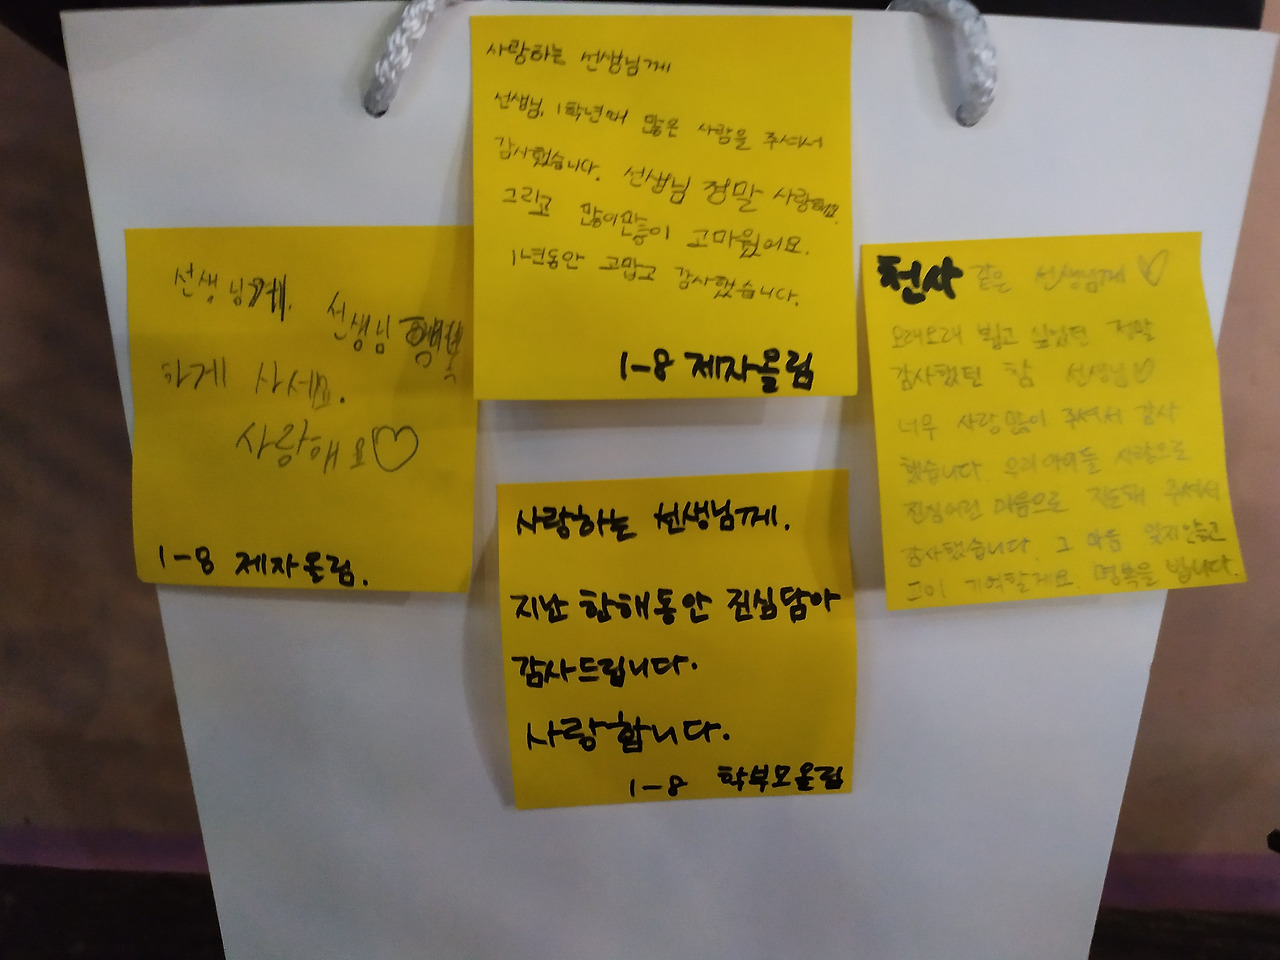 사랑하는 선생님께
선생님, 1학년때 많은 사랑을 주셔서
감사했습니다. 선생님 정말 사랑해요.
그리고 많이만등이 고마웠어요.
1년동안 고맙고 감사했습니다.
1-8 제자올림
선생님께. 선생님
하게 사세요.
사랑해요♡
1-8 제자올림.
천사 같은 선생님께♡
오래오래 뵙고 싶었던 정말
감사했던 참 선생님♡
너무 사랑 많이 주셔서 감사
했습니다. 우리아이들 사랑으로
진심어린 마음으로 지도해 주셔서
감사했습니다. 그 마음 잊지않고
기억할게요. 명복을 빕니다.
사랑하는 선생님께.
지난 한해동안 진심담아
감사드립니다.
사랑합니다.
1-8 학부모올림